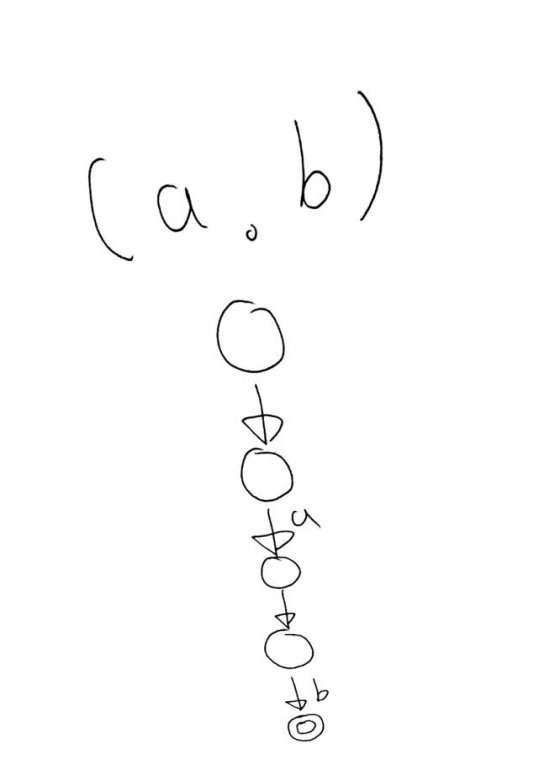 (a . b)
a
b